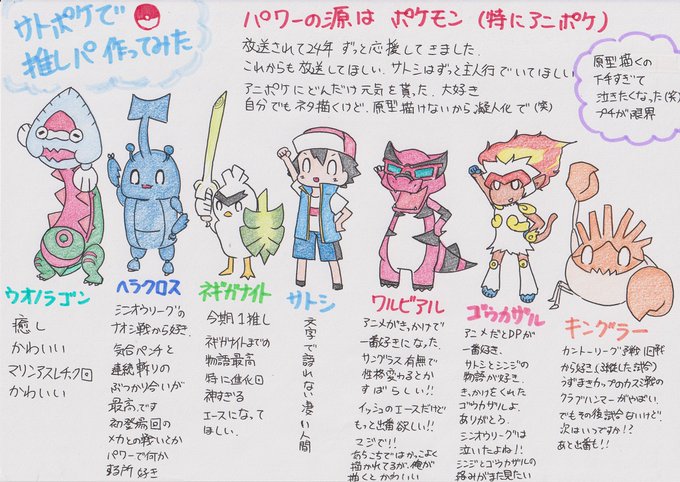 サトポケで
推しパ作ってみた
パワーの源は ポケモン (特にアニポケ)
放送されて24年 ずっと応援してきました.
これからも放送してほしい. サトシはずっと主人行でいてほしい
アニポケにどんだけ元気を貰った. 大好き
自分でもネタ描くけど、原型描けないから擬人化で(笑)
原型描くの
下手すぎて
泣きたくなった(笑)
プチが限界
ウオノラゴン
癒し
かわいい
マリンアスレチック回
かわいい
ヘラクロス
シンオウリーグの
ナオシ戦から好き.
気合パンチと
連続斬りの
ぶつかり合いが
最高です
初登場回の
メカとの戦いとか
パワーで何か
する所好き
ネギガナイト
今期1推し
ネギガナイトまでの
物語最高
特に進化回
神すぎる
エースになって
ほしい.
サトシ
文字で語れない凄い人間
ワルビアル
アニメがきっかけで
一番好きになった.
サングラス有無で
性格変わるとか
すばらしい!!
イッシュのエースだけど
もっと出番欲しい!!
マジで!!
あちこちではかっこよく
描かれてるが、俺が
描くとかわいい
ゴウカザル
アニメだとDPが
一番好き.
サトシとシンジの
物語が好き.
きっかけをくれた
ゴウカザルよ.
ありがとう.
シンオウリーグは
泣いたよね!!
シンジとゴウカザルの
絡みがまた見たい
キングラー
カントーリーグ予戦1回戦
から好き
うずまきカップのカスミ戦の
クラブハンマーがやばい.
でもその後試合ないけど.
次はいつですか!?
あと出番も!!